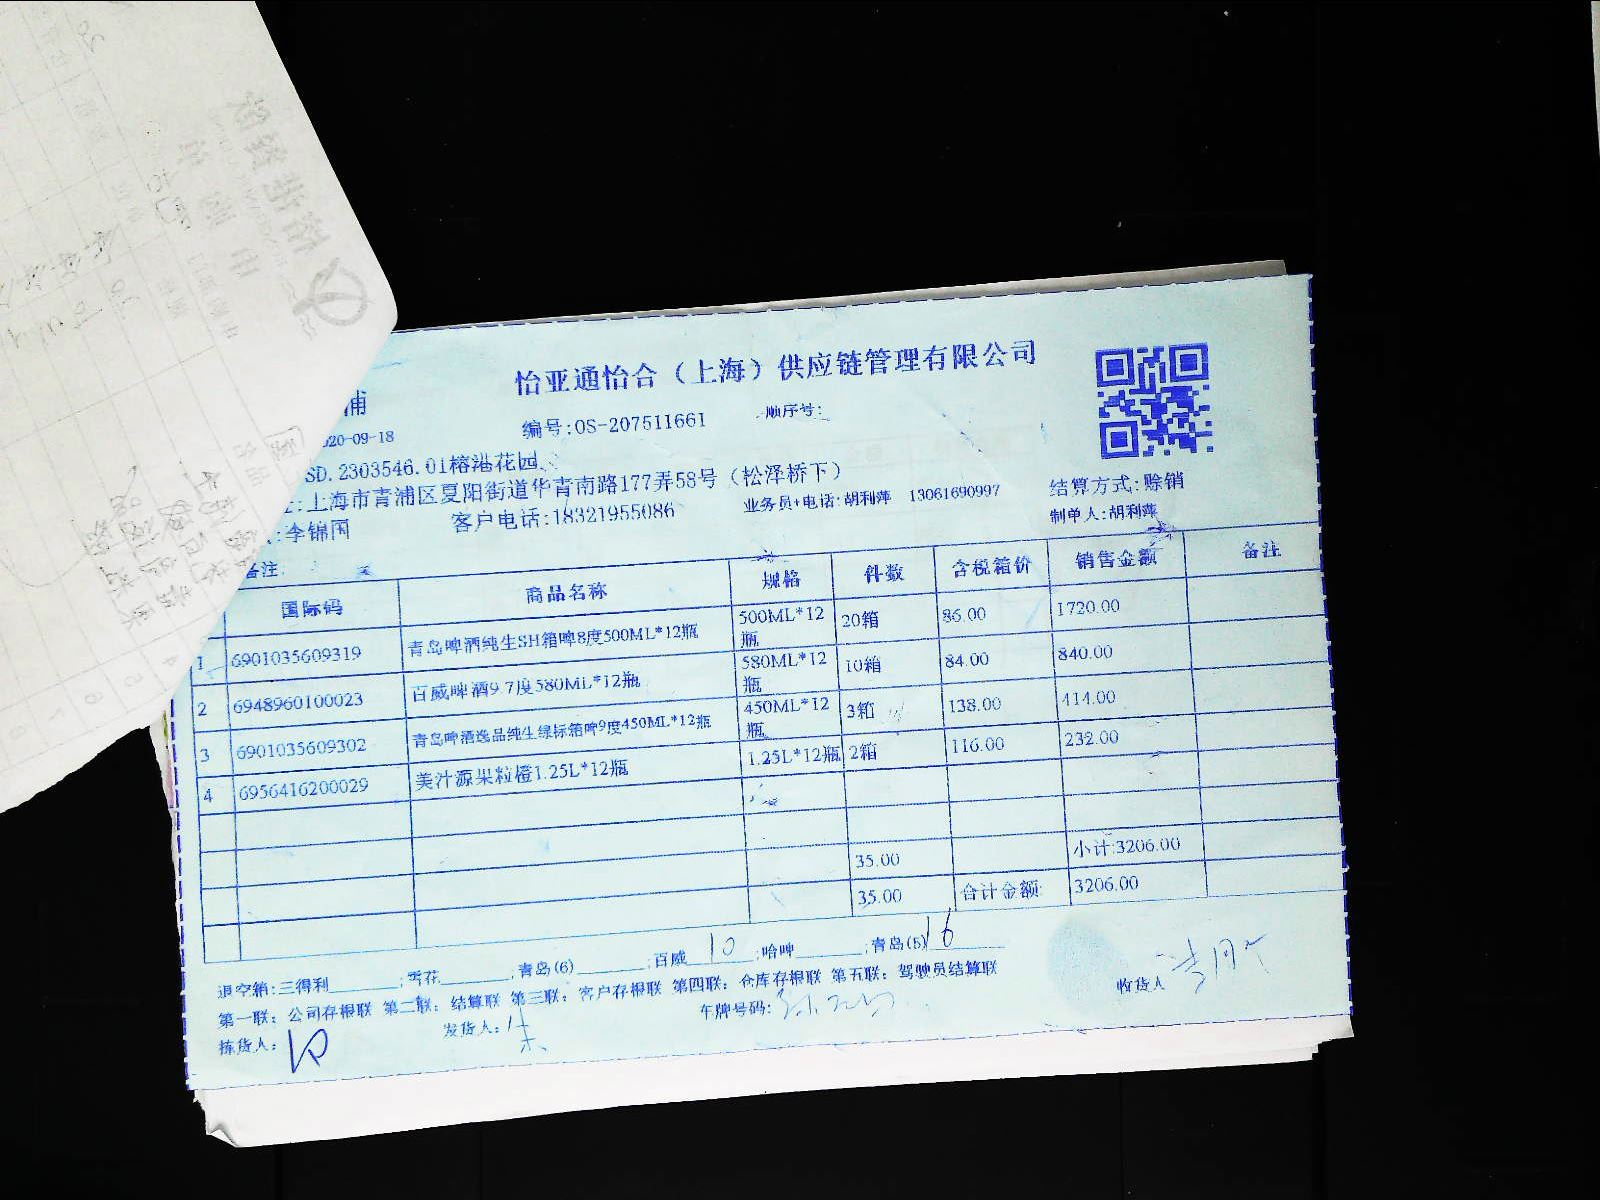 怡亚通怡合（上海）供应链管理有限公司
浦
020-09-18 编号:OS-207511661 顺序号:
SD.2303546.01榕港花园
:上海市青浦区夏阳街道华青南路177弄58号（松泽桥下） 业务员+电话:胡利萍 13061690997 结算方式:赊销
:李锦国 客户电话:18321955086 制单人:胡利萍
备注:
国际码 商品名称 规格 件数 含税箱价 销售金额 备注
1 6901035609319 青岛啤酒纯生SH箱啤8度500ML*12瓶 500ML*12瓶 20箱 86.00 1720.00
2 6948960100023 百威啤酒9.7度580ML*12瓶 580ML*12瓶 10箱 84.00 840.00
3 6901035609302 青岛啤酒逸品纯生绿标箱啤9度450ML*12瓶 450ML*12瓶 3箱 138.00 414.00
4 6956416200029 美汁源果粒橙1.25L*12瓶 1.25L*12瓶 2箱 116.00 232.00
35.00 小计:3206.00
35.00 合计金额: 3206.00
退空箱:三得利______;雪花______;青岛(6)______;百威 10 ;哈啤______;青岛(5) 16
第一联: 公司存根联 第二联: 结算联 第三联: 客户存根联 第四联: 仓库存根联 第五联: 驾驶员结算联
拣货人: 发货人: 车牌号码: 收货人